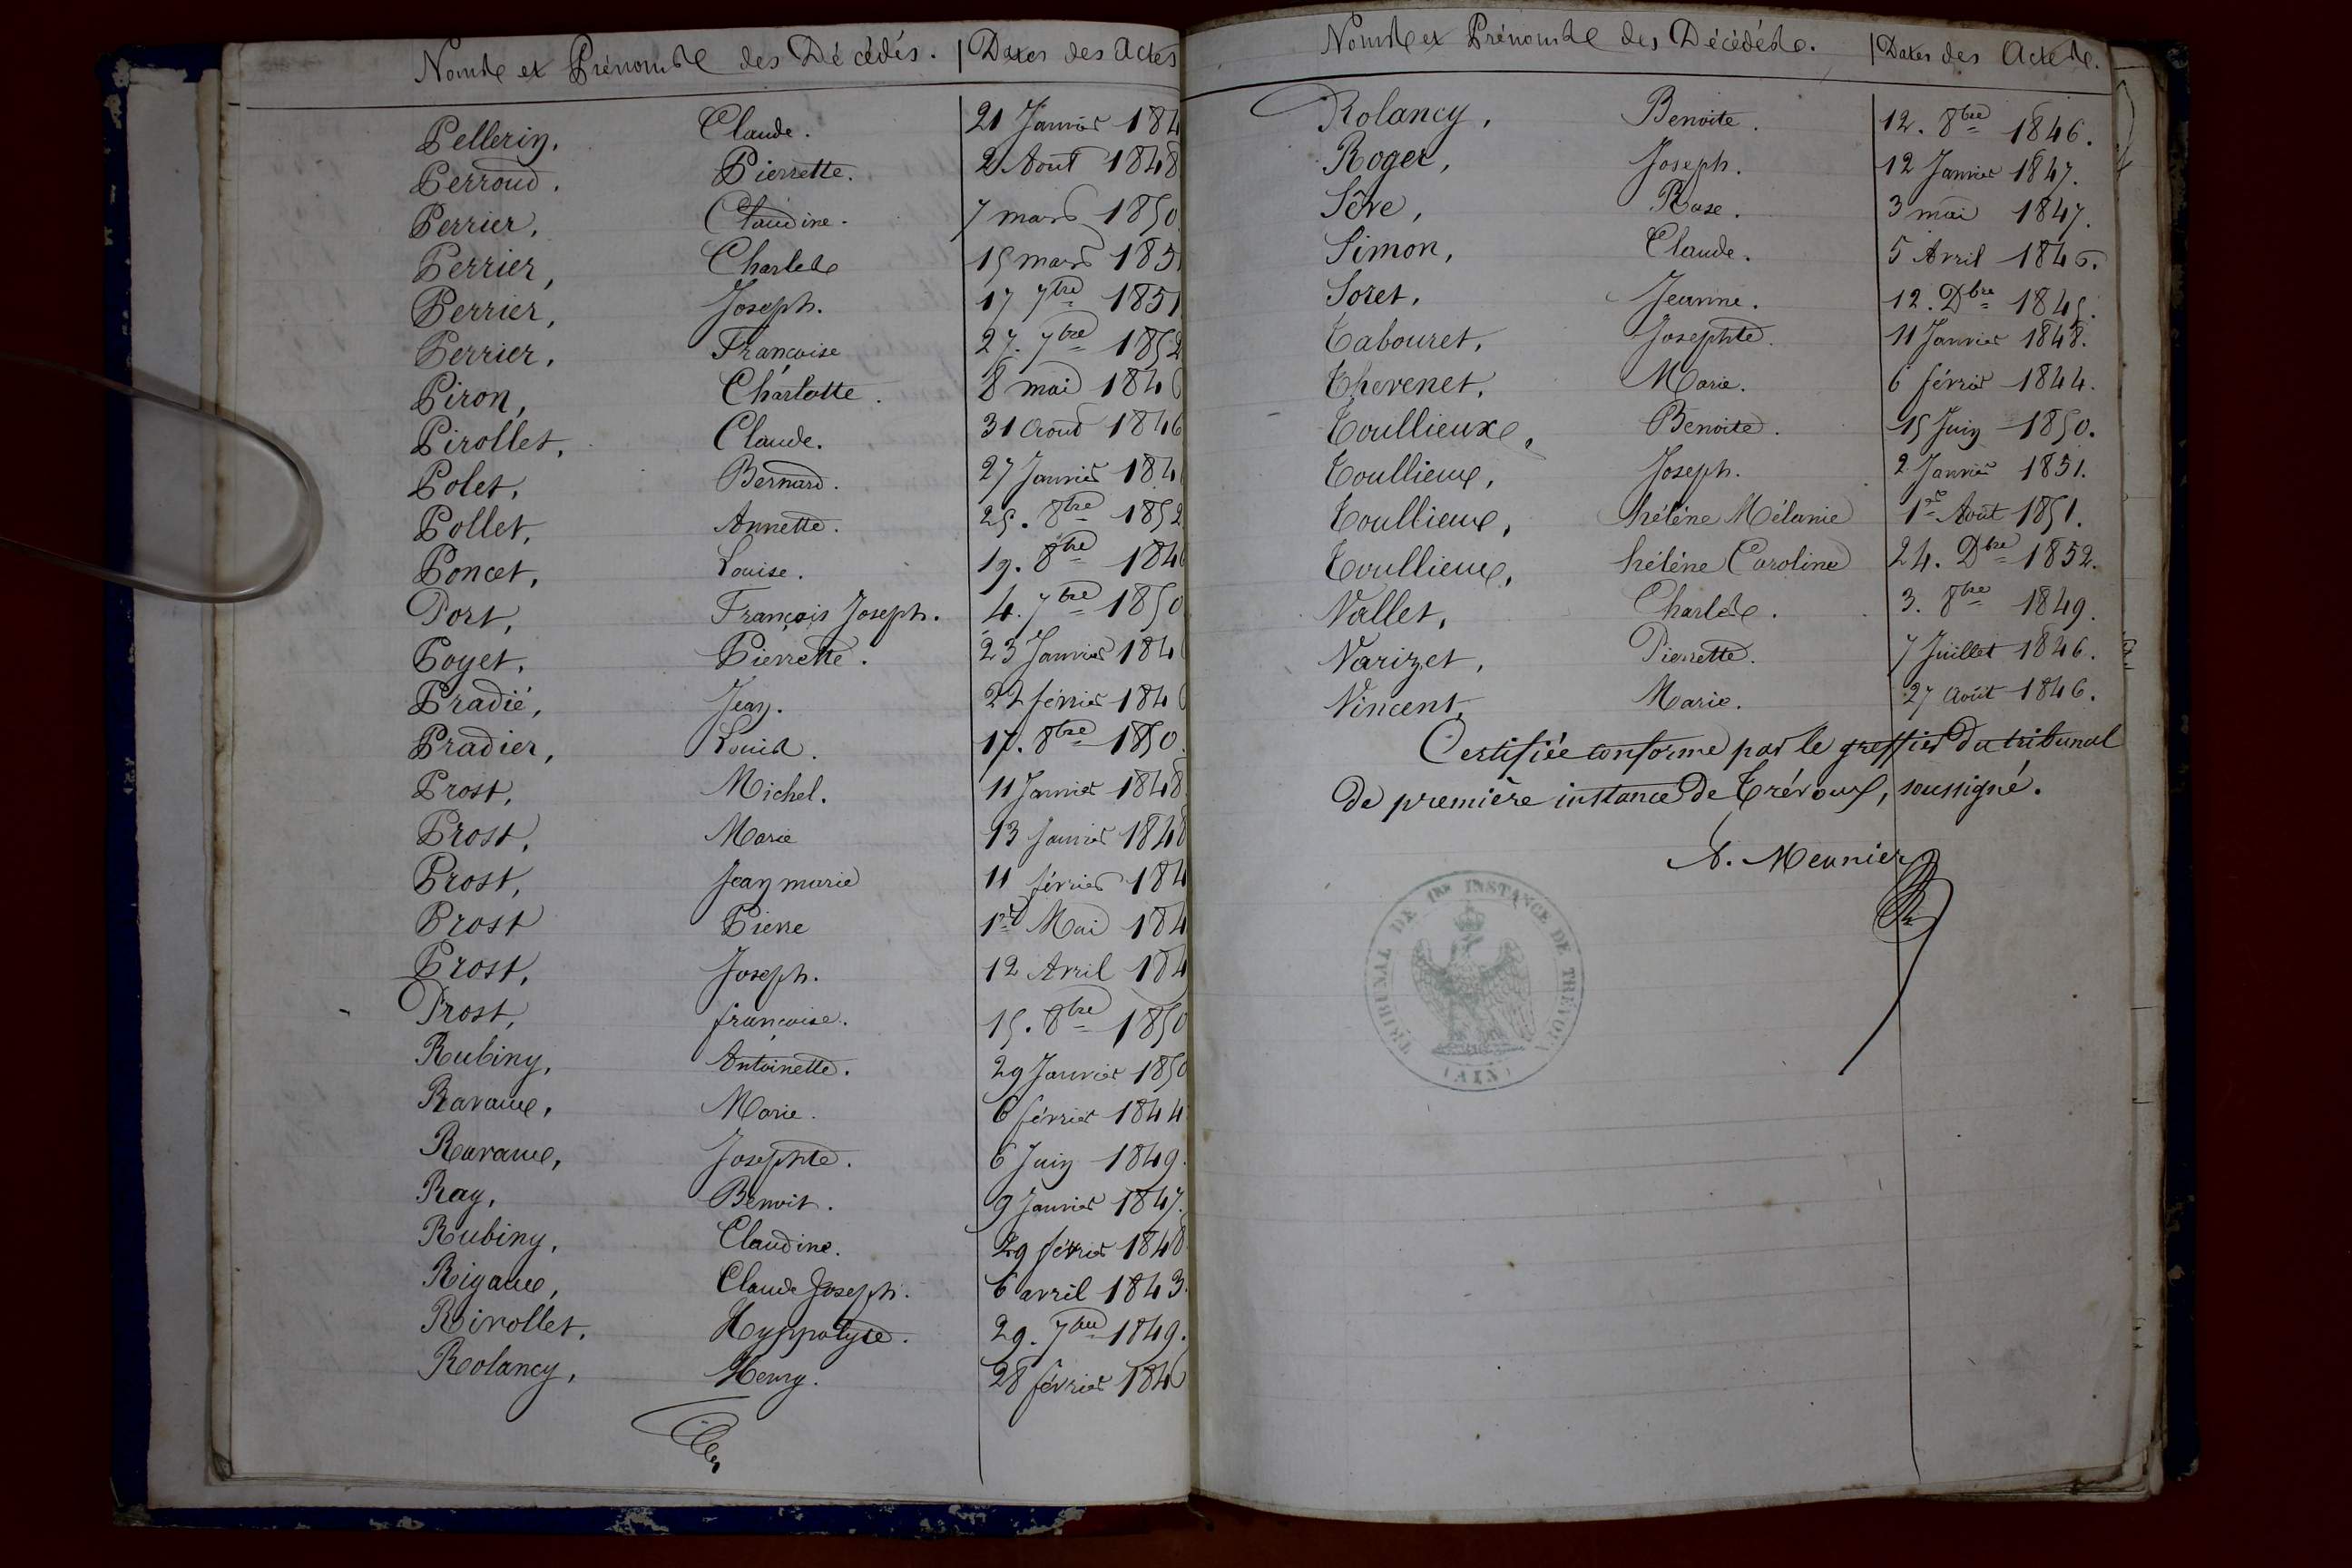 Noms et Prénoms des Décédés. | Dates des Actes
Pellerin, Claude. 21 Janvier 184
Perroud. Pierrette. 2 Aout 1848
Perrier, Claudine. 7 mars 1850
Perrier, Charles 15 mars 185
Perrier, Joseph. 17 7bre 1851
Perrier, Françoise 27. 7bre 1852
Piron, Charlotte. 8 mai 1846
Pirollet, Claude. 31 Aout 1846
Polet, Bernard. 27 Janvier 184
Pollet, Annette. 25. 8bre 1852
Poncet, Louise. 19. 8bre 184
Port, François Joseph. 4. 7bre 1850
Poyet, Pierrette. 23 Janvier 184
Pradié, Jean. 22 février 184
Pradier, Louis. 17. 8bre 1850
Prost, Michel. 11 Janvier 1848
Prost, Marie 13 Janvier 1848
Prost, Jean marie 11 février 184
Prost Pierre 1er Mai 184
Prost, Joseph. 12 Avril 184
Prost, françoise. 15. 8bre 1850
Rubiny, Antoinette. 29 Janvier 1850
Ravaux, Marie. 6 février 1844
Ravaux, Josephte. 6 Juin 1849.
Ray, Benoit. 9 Janvier 1847.
Rubiny, Claudine. 29 février 1848
Rigaux, Claude Joseph. 6 avril 1843.
Rivollet, Hyppolyte. 29. 7bre 1849.
Rolancy, Henry. 28 février 1846
Noms et Prénoms des Décédés. | Dates des Actes.
Rolancy, Benoite. 12. 8bre 1846.
Roger, Joseph. 12 Janvier 1847.
Sève, Rose. 3 mai 1847.
Simon, Claude. 5 Avril 1846.
Soret, Jeanne. 12. Dbre 1845.
Tabouret, Josephte. 11 Janvier 1848.
Thevenet, Marie. 6 février 1844.
Toullieux, Benoite. 15 Juin 1850.
Toullieux, Joseph. 2 Janvier 1851.
Toullieux, hélène Mélanie 1er Août 1851.
Toullieux, hélène Caroline 24. Dbre 1852.
Vallet, Charles. 3. 8bre 1849.
Varizet, Pierrette. 7 Juillet 1846.
Vincent, Marie. 27 Août 1846.
Certifiée conforme par le greffier du tribunal
de première instance de Trévoux, soussigné.
A. Meunier
TRIBUNAL DE 1ère INSTANCE DE TRÉVOUX
(AIN)